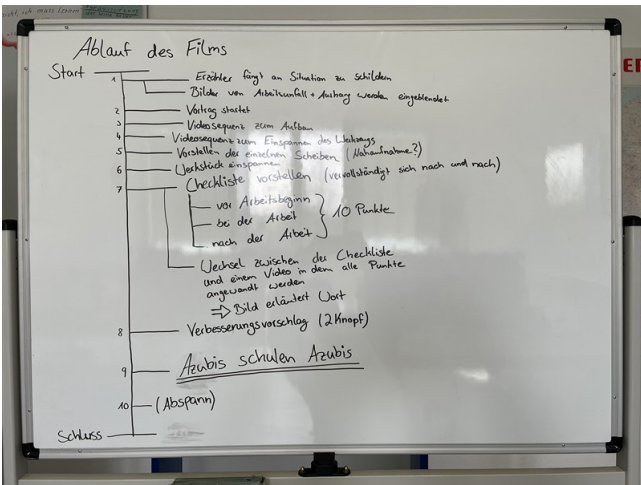 ich muss lernen
Ablauf des Films
Start
1 Erzähler fängt an Situation zu schildern
Bilder von Arbeitsunfall + Aushang werden eingeblendet
2 Vortrag startet
3 Videosequenz zum Aufbau
4 Videosequenz zum Einspannen des Werkzeugs
5 Vorstellen der einzelnen Scheiben (Nahaufnahme?)
6 Werkstück einspannen
7 Checkliste vorstellen (vervollständigt sich nach und nach)
vor Arbeitsbeginn
bei der Arbeit 10 Punkte
nach der Arbeit
Wechsel zwischen der Checkliste
und einem Video in dem alle Punkte
angewandt werden
⇒ Bild erläutert Wort
8 Verbesserungsvorschlag (2 Knopf)
9 Azubis schulen Azubis
10 (Abspann)
Schluss